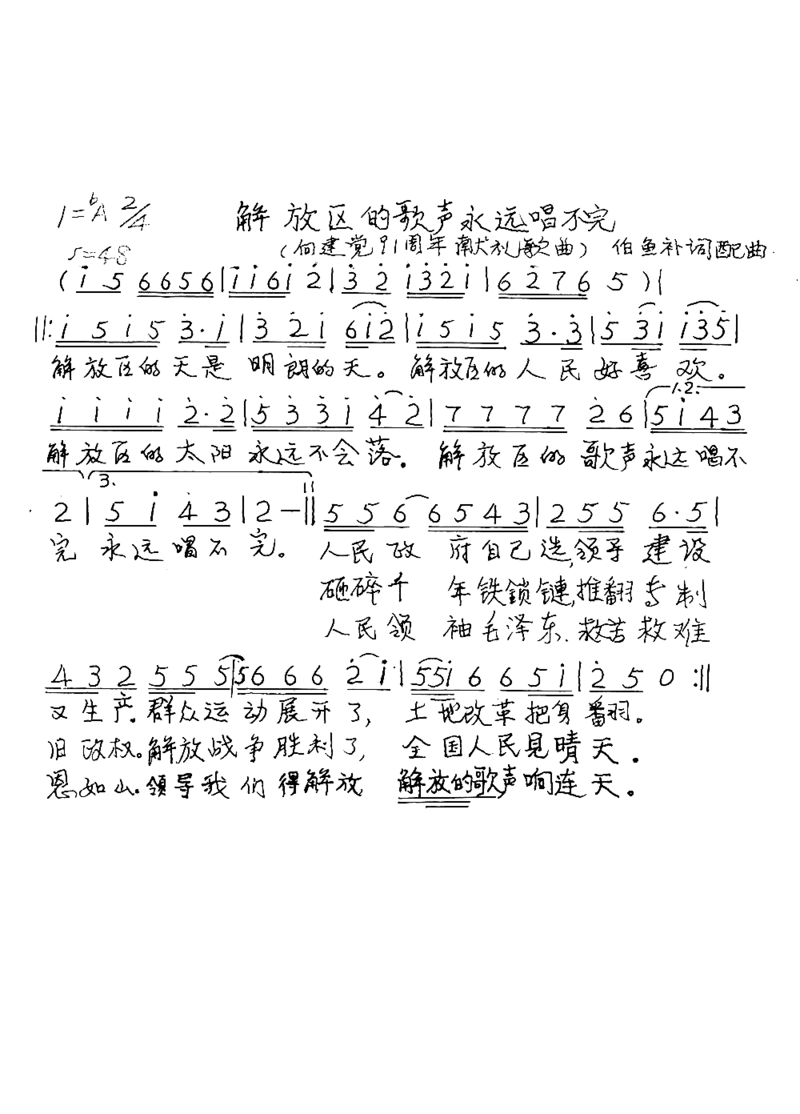 1=♭A 2/4 解放区的歌声永远唱不完
5=48 (向建党91周年献礼歌曲) 伯鱼补词配曲
(i̇ 5 6656|i̇i̇6i̇ 2̇|3̇ 2̇ i̇3̇2̇i̇|62̇76 5)|
||:i̇ 5 i̇ 5 3̇·i̇|3̇ 2̇i̇ 6i̇2̇|i̇5i̇5 3̇·3̇|5̇ 3̇i̇ i̇3̇5̇|
解放区的天是 明朗的天。 解放区的人民好喜欢。
i̇ i̇ i̇ i̇ 2̇·2̇|5̇ 3̇ 3̇ i̇ 4̇ 2̇|7 7 7 7 2̇ 6|5 i̇ 4̇ 3̇
1.2.
解放区的太阳永远不会落。 解放区的歌声永远唱不
3.
2̇|5 i̇ 4̇ 3|2̇-|| 5 5 6 6543|255 6·5|
完 永远唱不完。 人民政 府自己选,领导建设
砸碎千 年铁鎖鏈,推翻专制
人民领 袖毛泽东.救苦救难
4 3 2 5 5 5|5666 2̇ i̇|55i̇6 665i̇|2̇ 5 0 :||
又生产.群众运动展开了, 土地改革把身翻。
旧政权。解放战争胜利了, 全国人民見晴天.
恩如山.领导我们得解放 解放的歌声响连天。